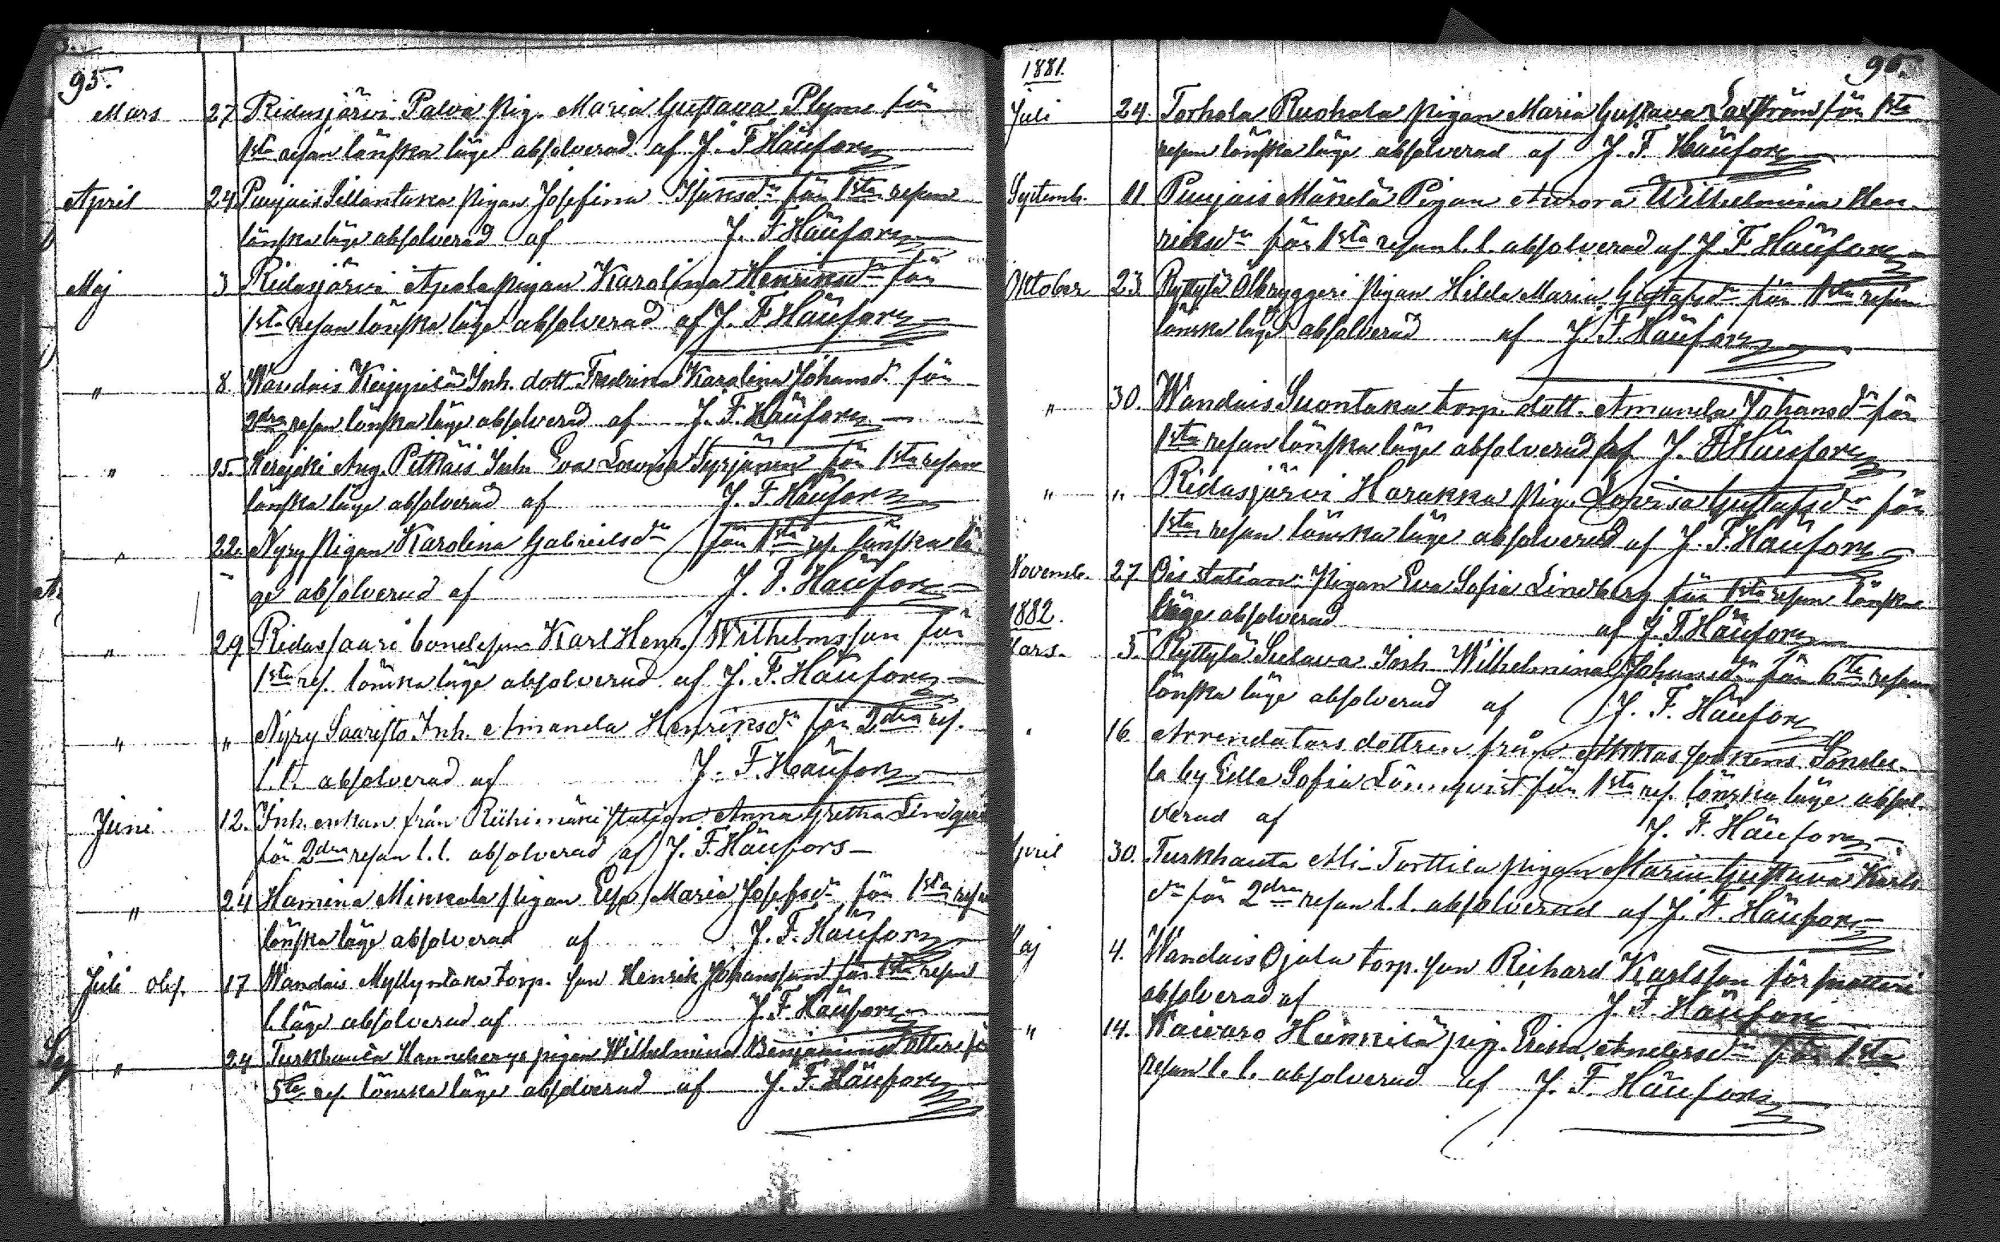 95.
Mars 27 Ridasjärvi Palva pig. Maria Gustava Plyme för
1sta resan lönska läge absolverad af J. F. Häufors
April 24 Puujais Sillantaka pigan Josefina Isaksdr för 1sta resan
lönska läge absolverad af J. F. Häufors
Maj 3 Ridasjärvi Apola pigan Karolina Henriksdr för
1sta resan lönska läge absolverad af J. F. Häufors
" 8. Wandais Keijupilä Inh. dott. Fredrika Karolina Johansdr för
2dra resan lönska läge absolverad af J. F. Häufors
" 15. Aug. Pitkäis Inh. Eva Lovisa Syrjänen för 1sta resan
lönska läge absolverad af J. F. Häufors
" 22. Nyry pigan Karolina Gabrielsdr för 1sta res. lönska lä
ge absolverad af J. F. Häufors
" 29 Ridassaari bondeson Karl Henr. Wilhelmsson för
1sta res. lönska läge absolverad af J. F. Häufors
" " Nyry Saaristo Inh. Amanda Henriksdr för 2dra res.
l. l. absolverad af J. F. Häufors
Juni 12. Inh. enkan från Riihimäki station Anna Gretha
för 2dra resan l. l. absolverad af J. F. Häufors
" 24 Hamina Mikkola pigan Eva Maria Josefsdr för 1sta resan
lönska läge absolverad af J. F. Häufors
Juli 17 Wandais Myllyntaka torp. son Henrik Johansson för 1sta resan
l. läge absolverad af J. F. Häufors
" 24 Turkhauta pigan Wilhelmina Benjaminsdotter för
5te res. lönska läge absolverad af J. F. Häufors
96.
1881.
Juli 24. Torhola Ruohola pigan Maria Gustava Laxström för 1sta
resan lönska läge absolverad af J. F. Häufors
Septemb. 11 Puujais Mäkelä Pigan Aurora Wilhelmina Hen-
riksdr för 1sta resan l. l. absolverad af J. F. Häufors
Oktober 23 Ryttylä Ölbryggeri pigan Hilda Maria Gustafsdr för 1sta resan
lönska läge absolverad af J. F. Häufors
" 30. Wandais Suontaka torp. dott. Amanda Johansdr för
1sta resan lönska läge absolverad af J. F. Häufors
" " Ridasjärvi Harakka pig. Lovisa Gustafsdr för
1sta resan lönska läge absolverad af J. F. Häufors
Novemb. 27 Ois station pigan Eva Sofia Lindberg för 1sta resan lönska
läge absolverad af J. F. Häufors
1882.
Mars 5 Ryttylä Sulava Inh. Wilhelmina Johansdr för 6te resan
lönska läge absolverad af J. F. Häufors
" 16. Arrendators dottren från Akkas sockens
la by Edla Sofia Lönnqvist för 1sta res. lönska läge absol-
verad af J. F. Häufors
April 30. Turkhauta Ali-Torttila pigan Maria Gustava Karls
dr för 2dra resan l. l. absolverad af J. F. Häufors
Maj 4. Wandais Ojala torp. son Richard Karlsson för snatteri
absolverad af J. F. Häufors
" 14. Kaivaro Heikkilä pig. Erika Andersdr för 1sta
resan l. l. absolverad af J. F. Häufors